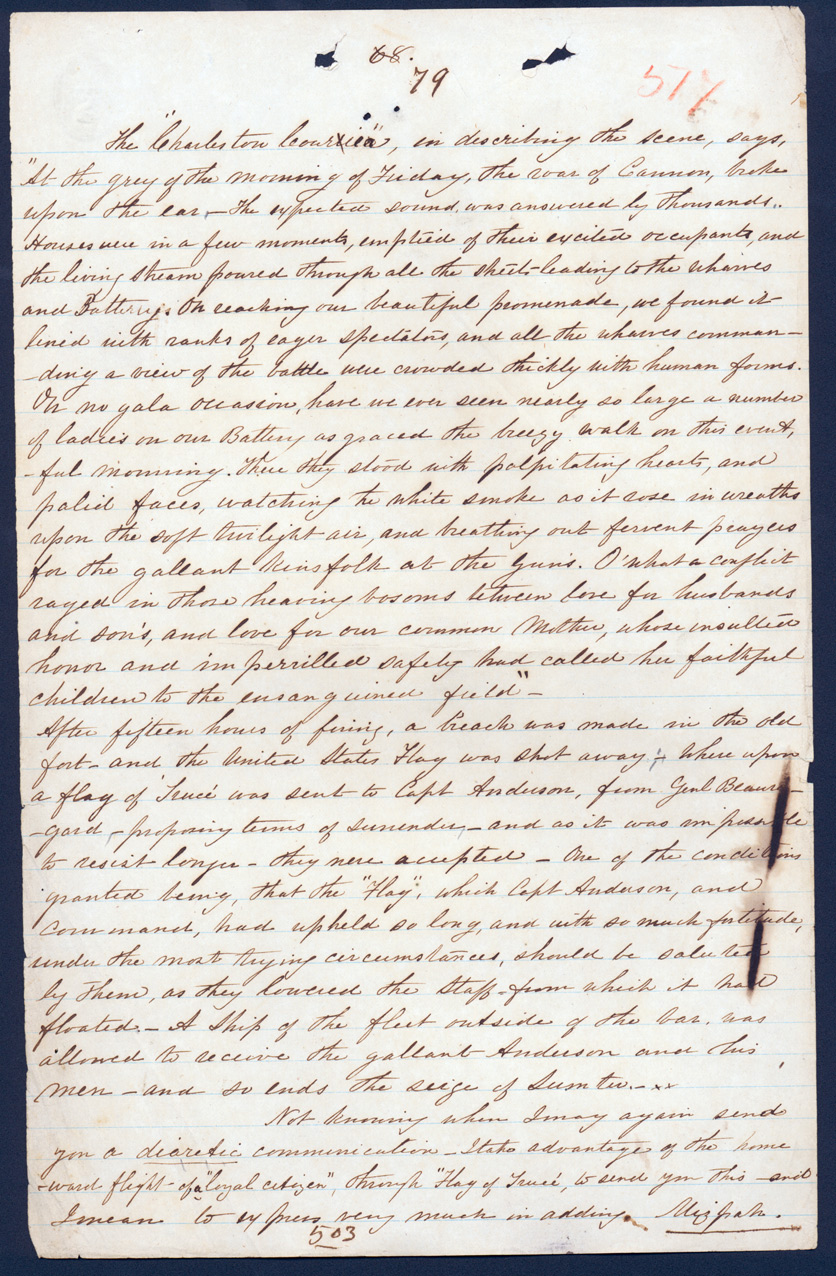 68.
79
577
The "Charleston Courier", in describing the scene, says,
"At the grey of the morning of Friday, the roar of Cannon, broke
upon the ear,— The expected sound was answered by thousands.
Houses were in a few moments, emptied of their excited occupants, and
the living stream poured through all the streets leading to the wharves
and Battery. On reaching our beautiful promenade, we found it
lined with ranks of eager spectators, and all the wharves comman-
-ding a view of the battle were crowded thickly with human forms.
On no gala occasion, have we ever seen nearly so large a number
of ladies on our Battery as graced the breezy walk on this event,
-ful morning. There they stood with palpitating hearts, and
palid faces, watching the white smoke as it rose in wreaths
upon the soft twilight air, and breathing out fervent prayers
for the gallant kinsfolk at the Guns. O' what a conflict
raged in those heaving bosoms between love for husbands
and son's, and love for our common Mother, whose insulted
honor and imperrilled safety had called her faithful
children to the ensanguined field"—
After fifteen hours of firing, a breach was made in the old
fort— and the United States Flag was shot away;— Where upon
a flag of Truce was sent to Capt Anderson, from Genl Beaure-
-gard — proposing terms of surrender,— and as it was impossible
to resist longer — they were accepted — One of the conditions
granted being, that the "Flag", which Capt Anderson, and
command, had upheld so long, and with so much fortitude,
under the most trying circumstances, should be saluted
by them, as they lowered the Staff from which it had
floated.— A Ship of the fleet outside of the bar, was
allowed to receive the gallant Anderson and his
men — and so ends the seige of Sumter.—xx
Not knowing when I may again send
you a diaretic communication — I take advantage of the home
-ward flight of a "loyal citizen", through "Flag of Truce", to send you this — and
I mean to express very much in adding Mizpah.
503